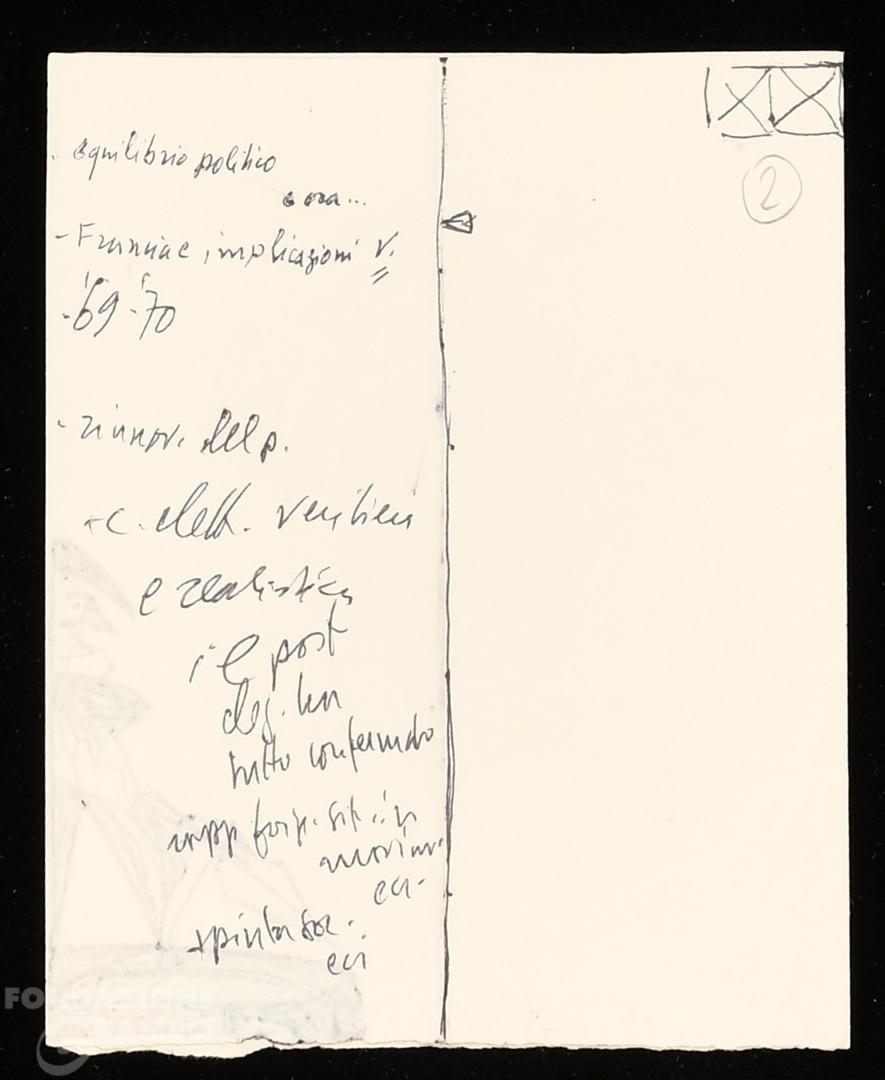 equilibrio politico
e ora...
- Francia e implicazioni V.
- '69-'70
- rinnov. del p.
+ c. elett.
e realistica
il post
ha
tutto confermato
rapp forz. sit. in
movim.
ecc.
spinta soc.
ecc
2